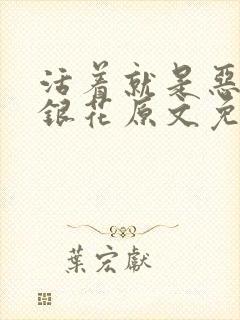 活着就是惡
銀花原文免
葉宏獻